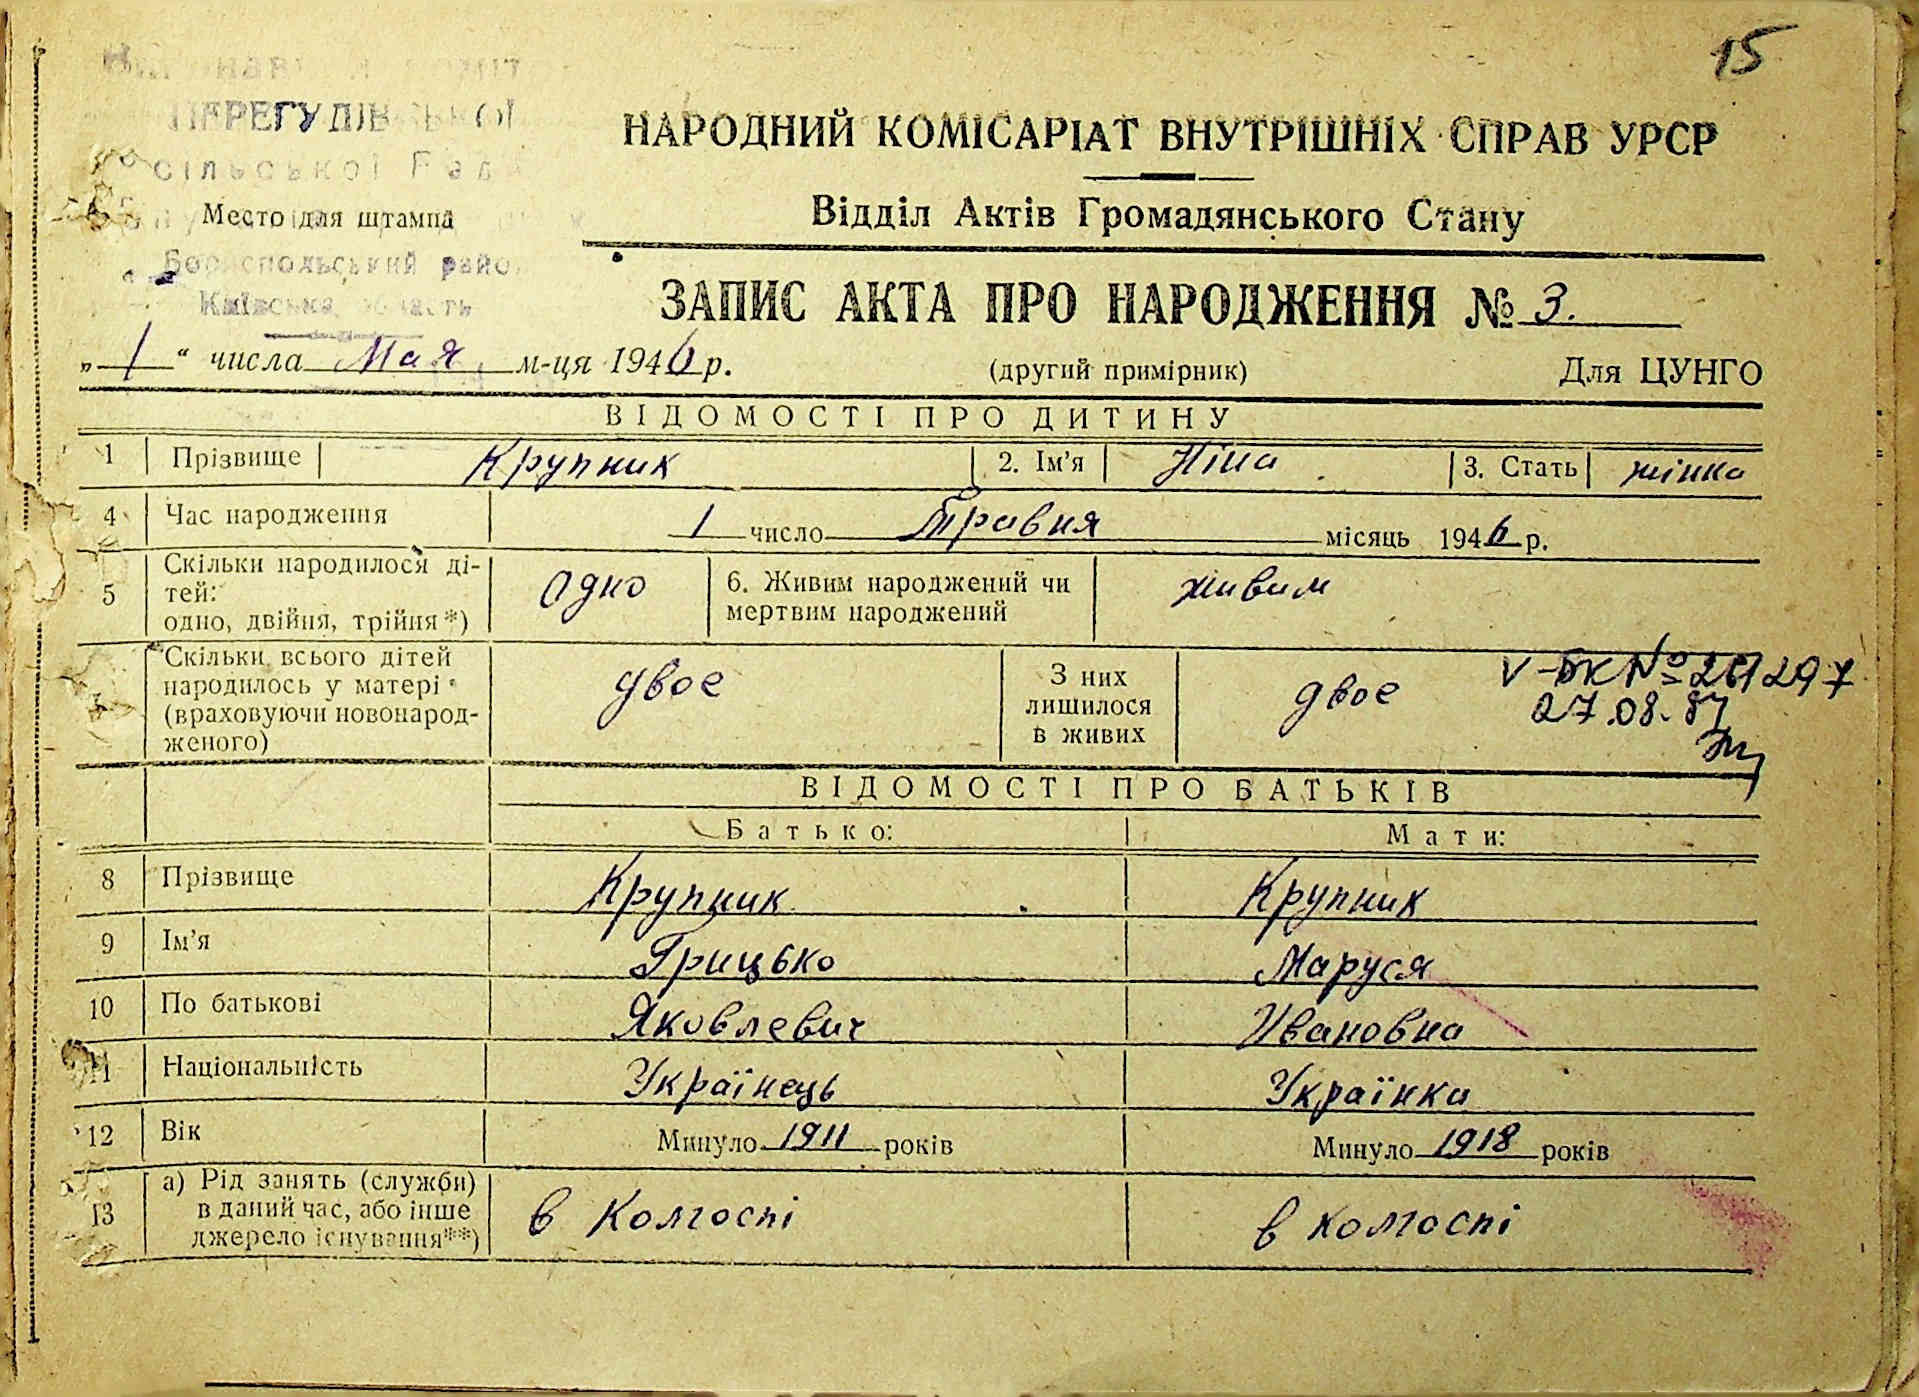 15
ПЕРЕГУДІВСЬКОЇ
сільської Ради
Место для штампа
Бориспольський район
Київська область
НАРОДНИЙ КОМІСАРІАТ ВНУТРІШНІХ СПРАВ УРСР
Відділ Актів Громадянського Стану
ЗАПИС АКТА ПРО НАРОДЖЕННЯ № 3.
„ 1 “ числа Мая м-ця 1946 р. (другий примірник) Для ЦУНГО
ВІДОМОСТІ ПРО ДИТИНУ
1 Прізвище Крупник 2. Ім’я Ніна 3. Стать жінка
4 Час народження 1 число Травня місяць 1946 р.
5 Скільки народилося дітей: одно, двійня, трійня*) одно 6. Живим народжений чи мертвим народжений живим
Скільки всього дітей народилось у матері (враховуючи новонародженого) двое З них лишилося в живих двое
27.08.87
ВІДОМОСТІ ПРО БАТЬКІВ
Батько: Мати:
8 Прізвище Крупник Крупник
9 Ім’я Грицько Маруся
10 По батькові Яковлевич Ивановна
11 Національність Українець Українка
12 Вік Минуло 1911 років Минуло 1918 років
13 а) Рід занять (служби) в даний час, або інше джерело існування**) в Колгоспі в колгоспі